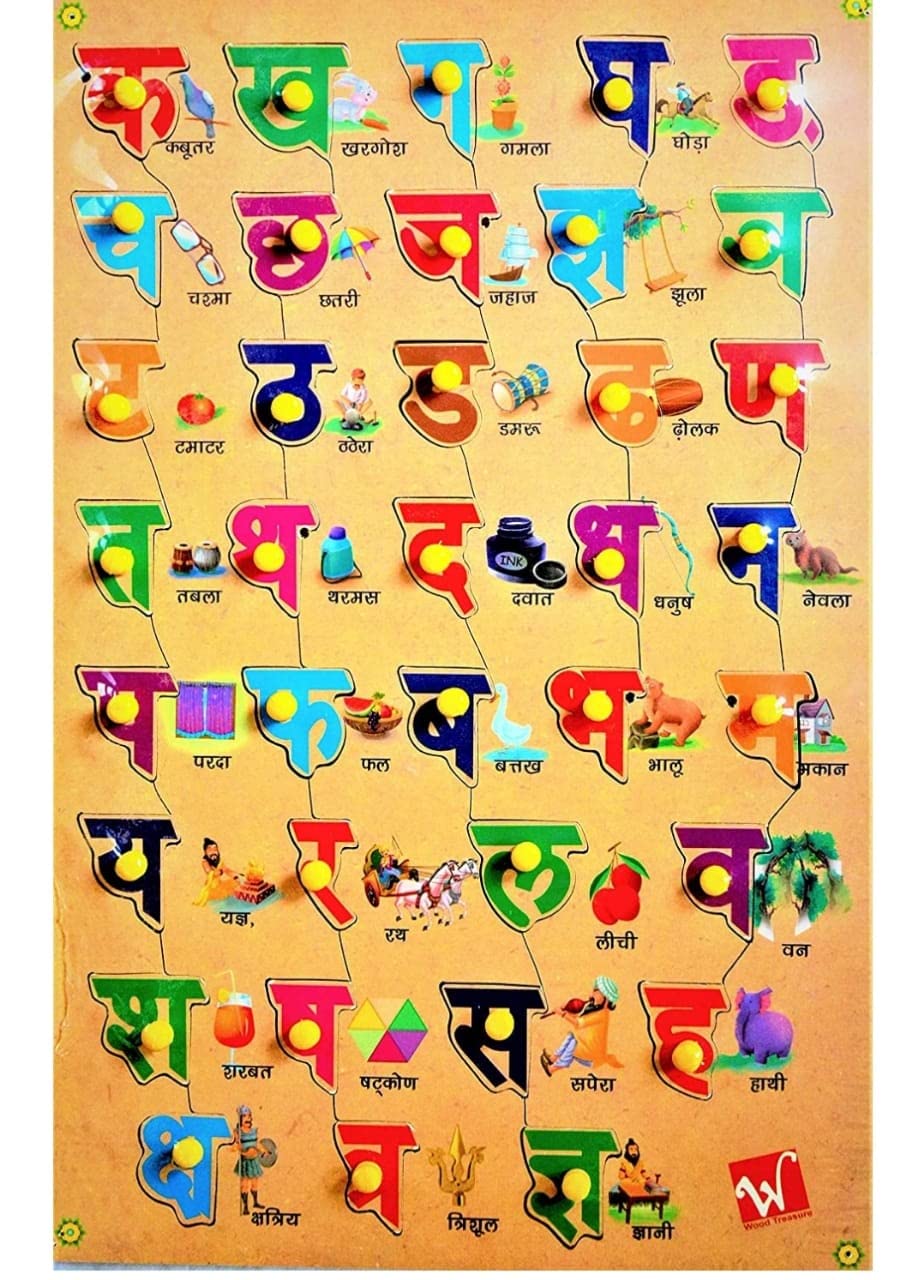 क ख ग घ ङ
कबूतर खरगोश गमला घोड़ा
च छ ज झ ञ
चश्मा छतरी जहाज झूला
ट ठ ड ढ ण
टमाटर ठठेरा डमरू ढ़ोलक
त थ द ध न
INK
तबला थरमस दवात धनुष नेवला
प फ ब भ म
परदा फल बत्तख भालू मकान
य र ल व
यज्ञ, रथ लीची वन
श ष स ह
शरबत षट्कोण सपेरा हाथी
क्ष त्र ज्ञ
क्षत्रिय त्रिशूल ज्ञानी
W
Wood Treasure